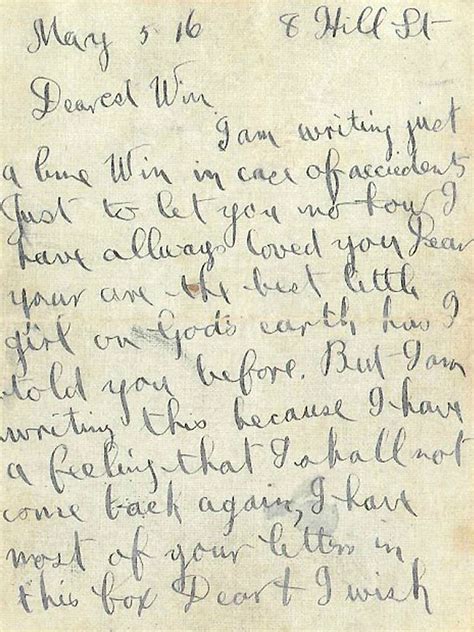 May 5 16 8 Hill St
Dearest Win
I am writing just
a line Win in case of accidents
Just to let you no how I
have allways loved you Dear
your are the best little
girl on God's earth has I
told you before. But I am
writing this because I have
a feeling that I shall not
come back again, I have
most of your letters in
this box Dear & I wish